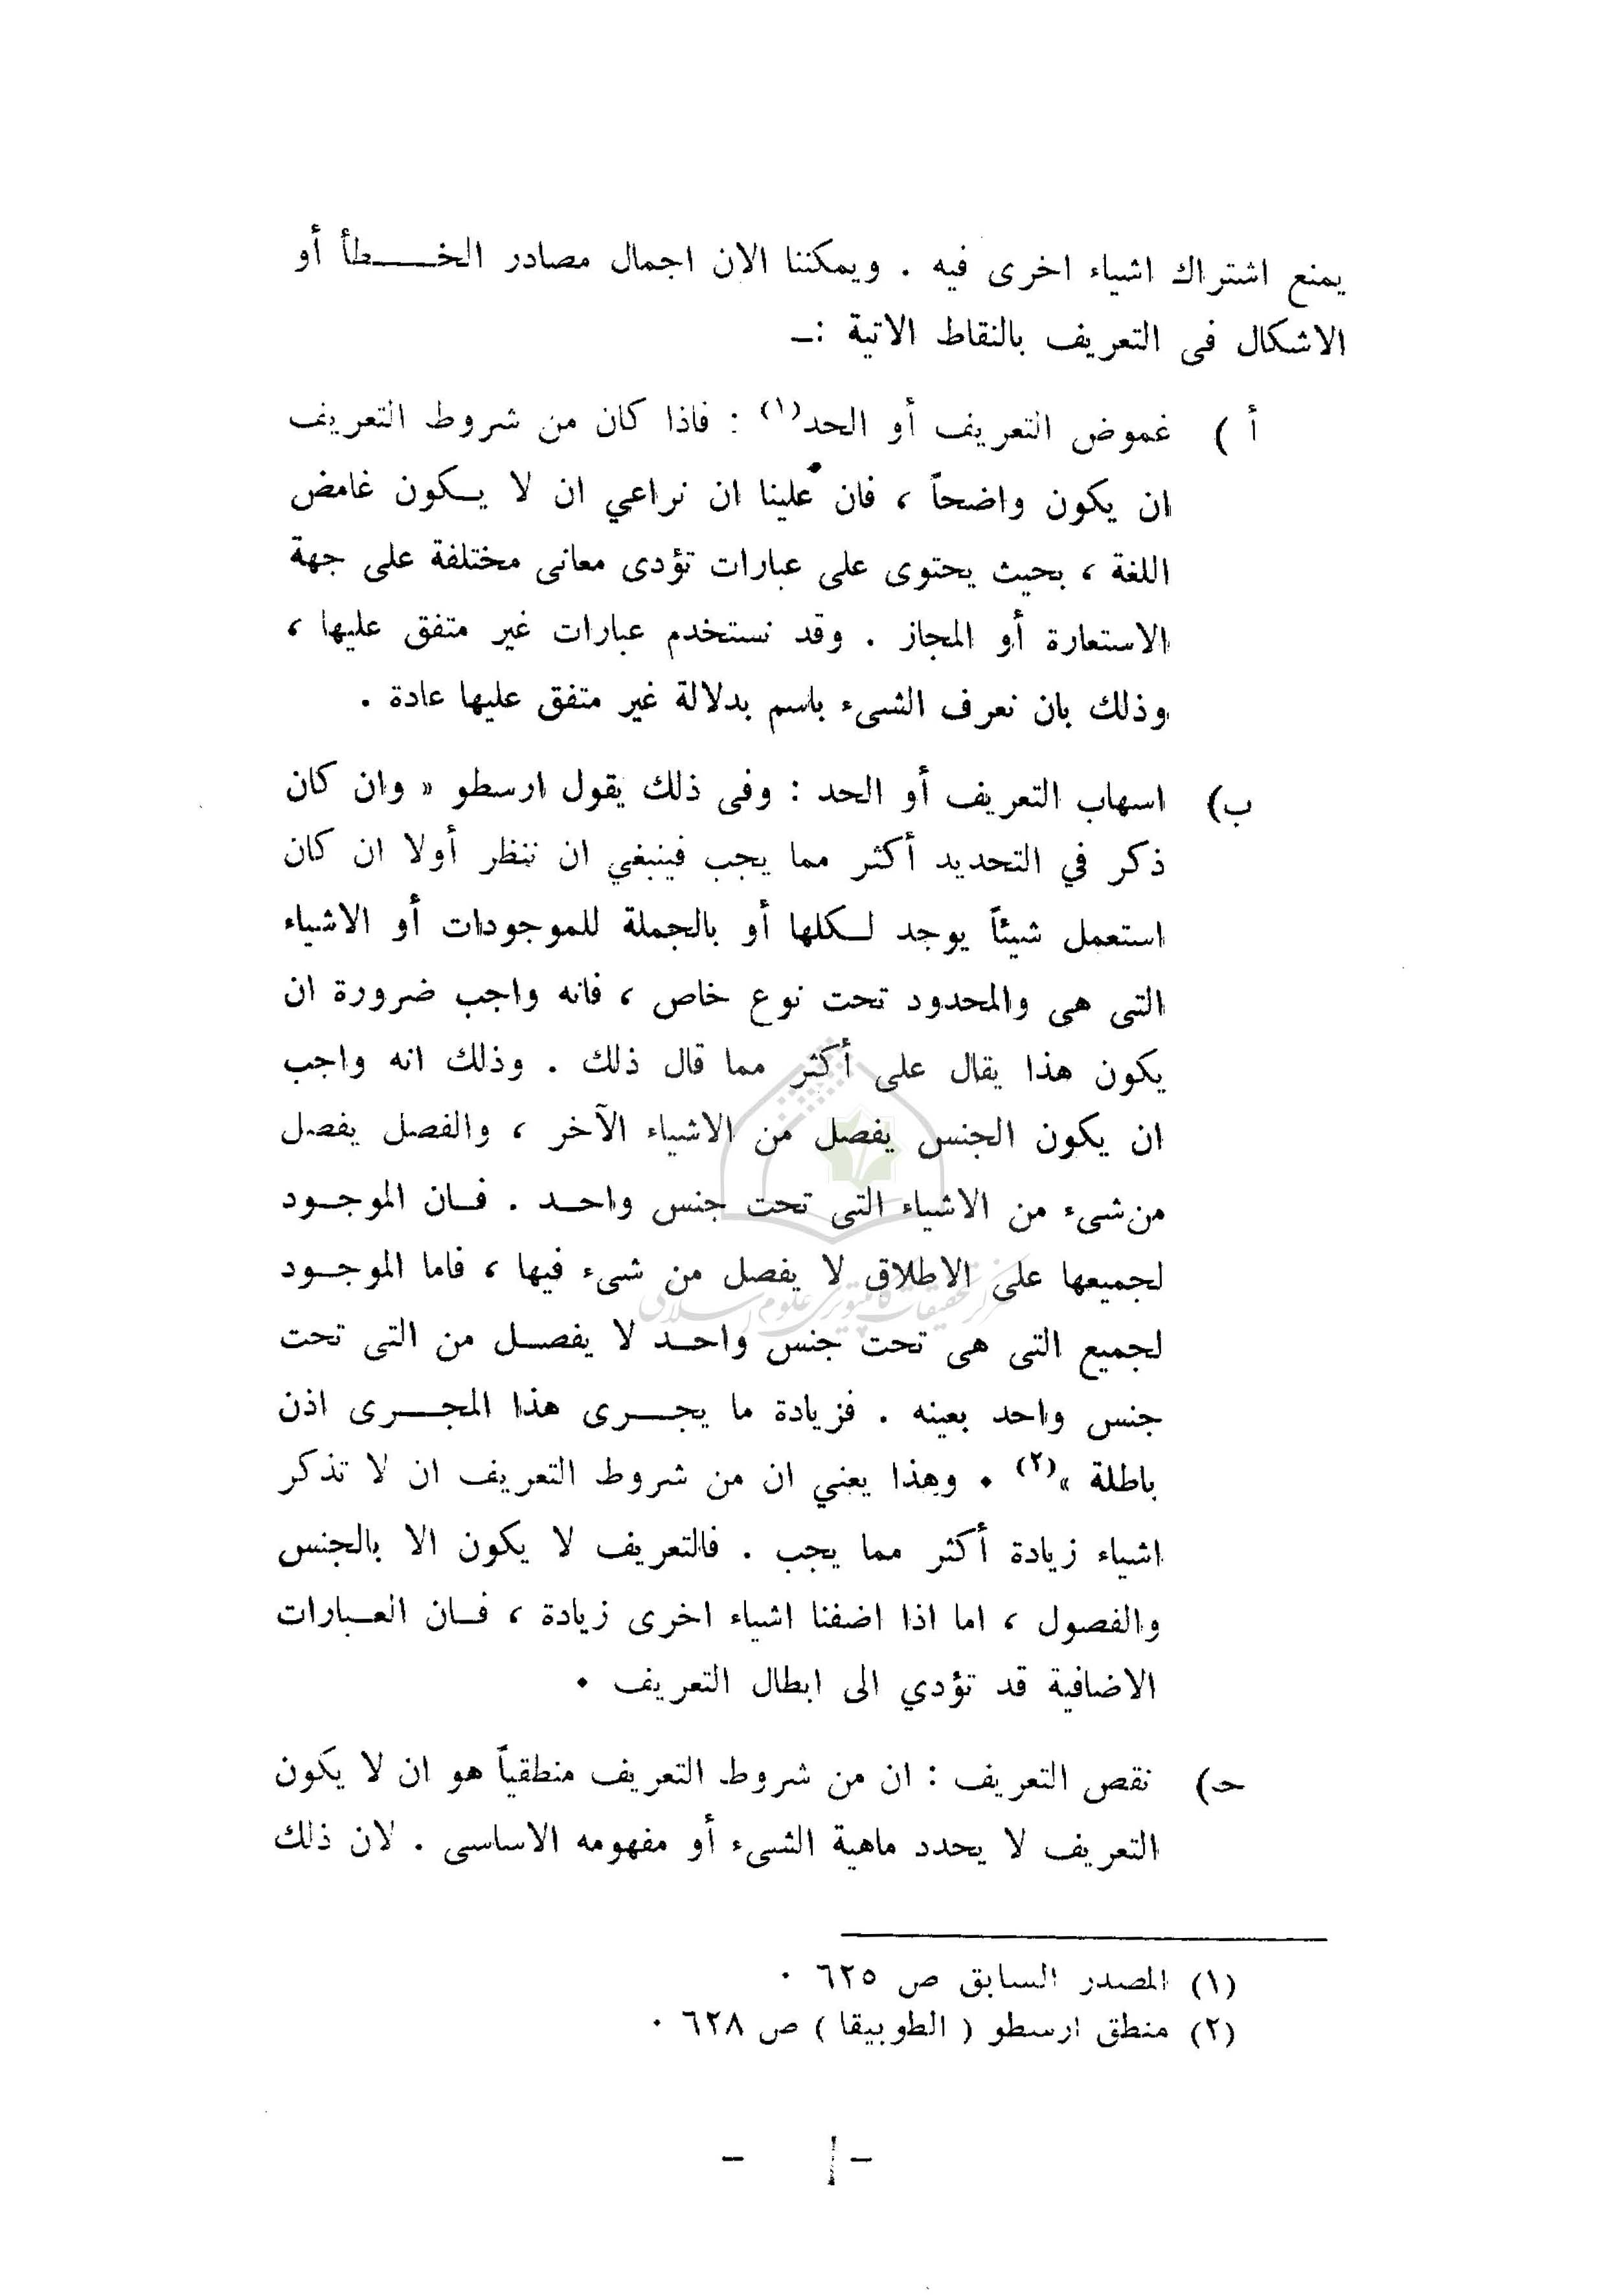 يمنع اشتراك اشياء اخرى فيه . ويمكننا الان اجمال مصادر الخطأ أو
الاشكال فى التعريف بالنقاط الاتية :ـ
أ ) غموض التعريف أو الحد(١) : فاذا كان من شروط التعريف
ان يكون واضحاً ، فان علينا ان نراعي ان لا يكون غامض
اللغة ، بحيث يحتوى على عبارات تؤدى معانى مختلفة على جهة
الاستعارة أو المجاز . وقد نستخدم عبارات غير متفق عليها ،
وذلك بان نعرف الشىء باسم بدلالة غير متفق عليها عادة .
ب) اسهاب التعريف أو الحد : وفى ذلك يقول ارسطو « وان كان
ذكر في التحديد أكثر مما يجب فينبغي ان ننظر أولا ان كان
استعمل شيئاً يوجد لكلها أو بالجملة للموجودات أو الاشياء
التى هى والمحدود تحت نوع خاص ، فانه واجب ضرورة ان
يكون هذا يقال على أكثر مما قال ذلك . وذلك انه واجب
ان يكون الجنس يفصل من الاشياء الآخر ، والفصل يفصل
من شىء من الاشياء التى تحت جنس واحد . فان الموجود
لجميعها على الاطلاق لا يفصل من شىء فيها ، فاما الموجود
لجميع التى هى تحت جنس واحد لا يفصل من التى تحت
جنس واحد بعينه . فزيادة ما يجرى هذا المجرى اذن
باطلة »(٢) . وهذا يعني ان من شروط التعريف ان لا تذكر
اشياء زيادة أكثر مما يجب . فالتعريف لا يكون الا بالجنس
والفصول ، اما اذا اضفنا اشياء اخرى زيادة ، فان العبارات
الاضافية قد تؤدي الى ابطال التعريف .
حـ) نقص التعريف : ان من شروط التعريف منطقياً هو ان لا يكون
التعريف لا يحدد ماهية الشىء أو مفهومه الاساسى . لان ذلك
(١) المصدر السابق ص ٦٢٥ .
(٢) منطق ارسطو ( الطوبيقا ) ص ٦٢٨ .
مركز تحقيقات كامپيوتري علوم اسلامي